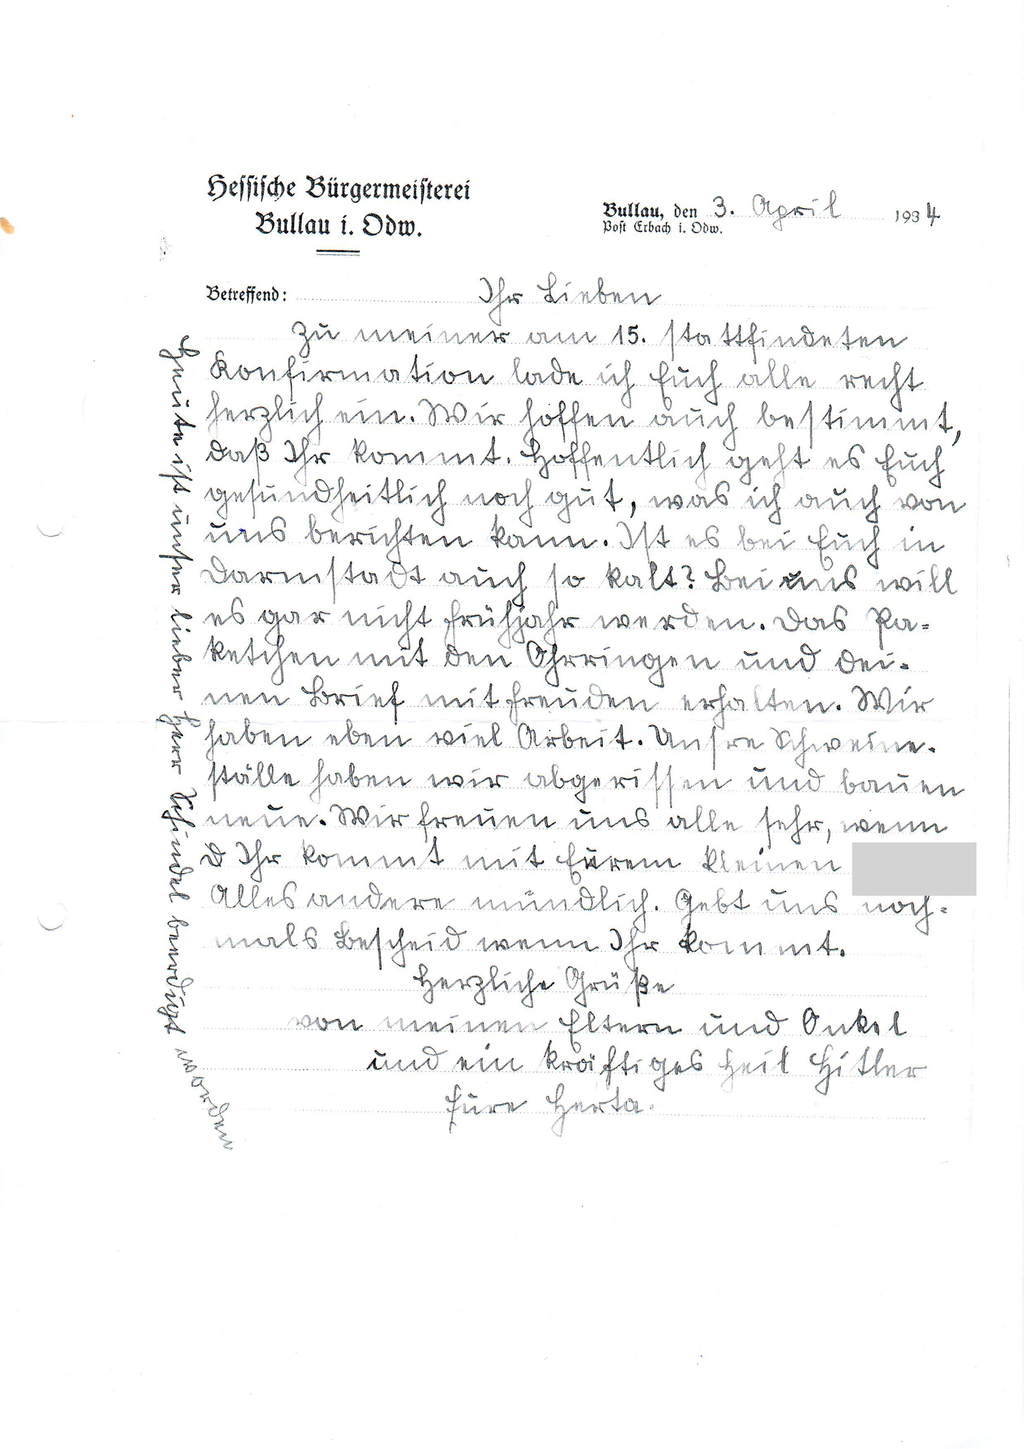 Hessische Bürgermeisterei
Bullau i. Odw.
Bullau, den 3. April 1934
Post Erbach i. Odw.
Betreffend: Ihr Lieben
Zu meiner am 15. stattfindeten
Konfirmation lade ich Euch alle recht
herzlich ein. Wir hoffen auch bestimmt,
daß Ihr kommt. Hoffentlich geht es Euch
gesundheitlich noch gut, was ich auch von
uns berichten kann. Ist es bei Euch in
Darmstadt auch so kalt? Bei uns will
es gar nicht Frühjahr werden. Das Pa=
ketchen mit den Ohrringen und dei=
nen Brief mit Freuden erhalten. Wir
haben eben viel Arbeit. Unsre Schweine=
ställe haben wir abgerissen und bauen
neue. Wir freuen uns alle sehr, wenn
Ihr kommt mit Eurem kleinen
Alles andere mündlich. Gebt uns noch=
mals Bescheid wenn Ihr kommt.
Herzliche Grüße
von meinen Eltern und Onkel
und ein kräftiges Heil Hitler
Eure Herta.
Heute ist unser lieber Herr Schindel beerdigt worden